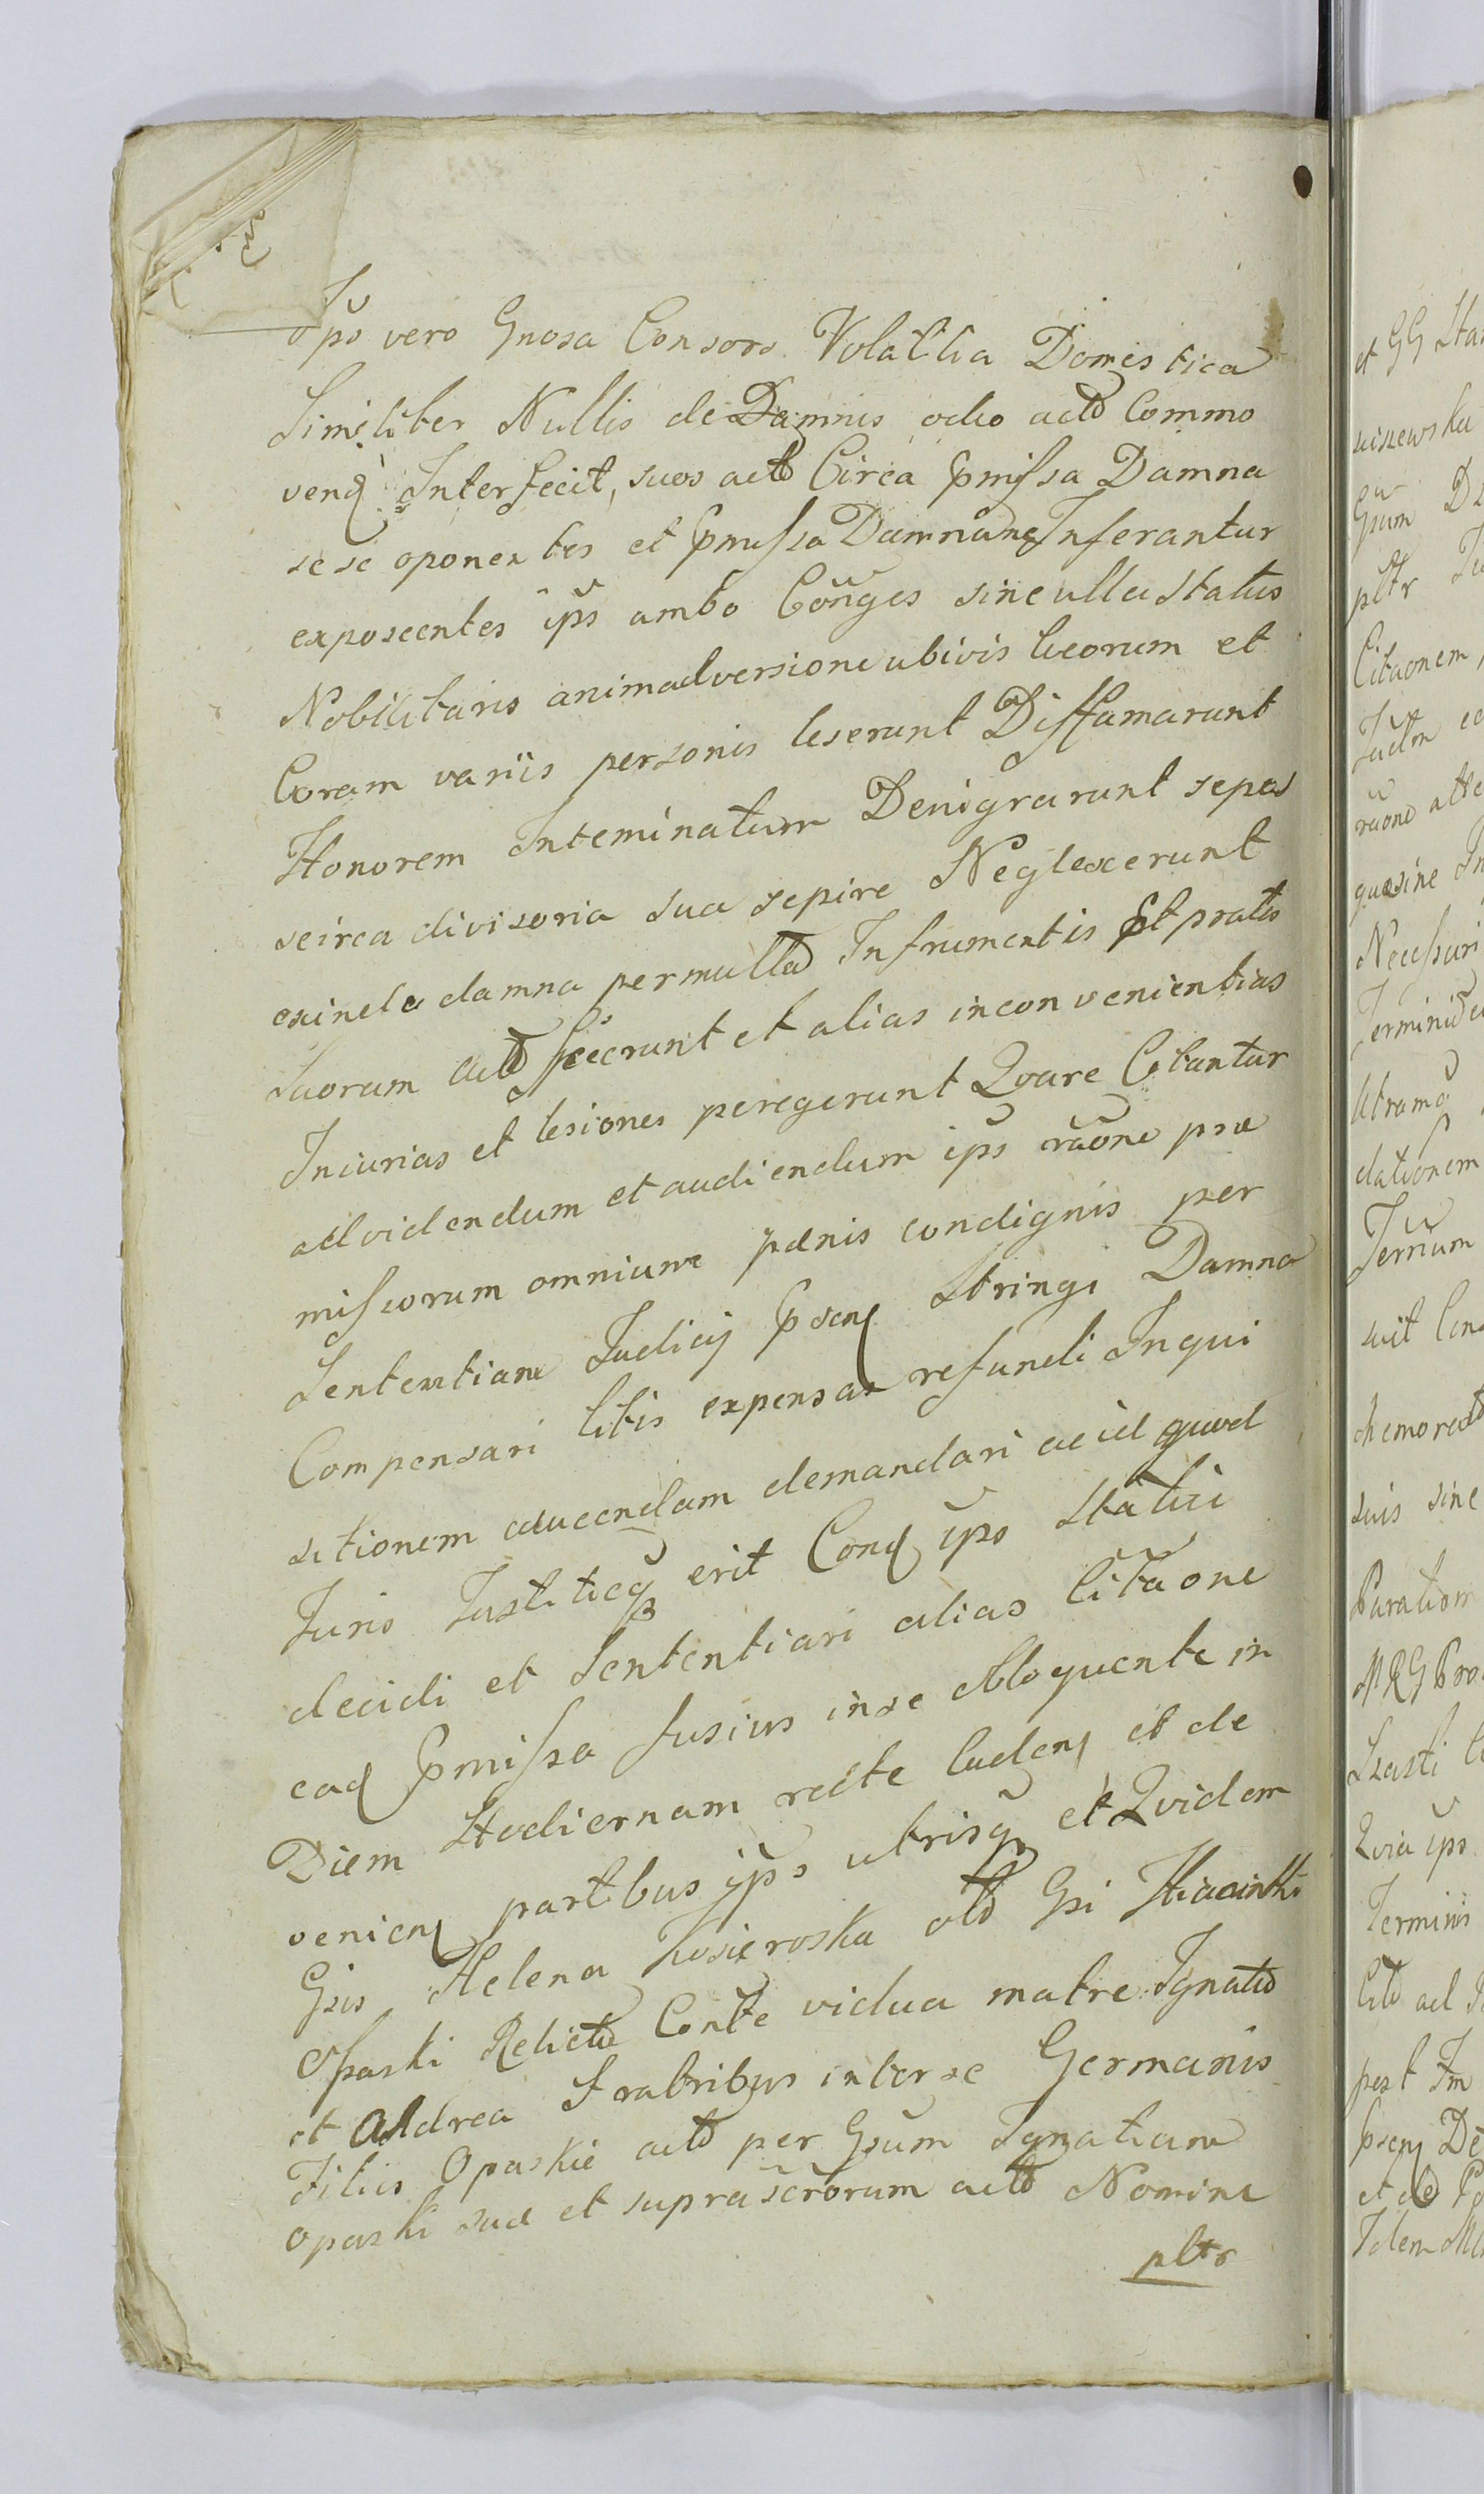 Ips vero Gnosa Consors Volatilia Domestica
Similiter Nullis de Damnis odio actō Commo
vend Interfecit, suos actō Circa pmissa Damna
sese oponentes et pmissa Damna ne Inferantur
exposcentes ips ambo Conges sine ulla Status
Nobilitaris animadversione ubivis locorum et
Coram variis personis leserunt Diffamarunt
Honorem Inteminatum Denigrarunt sepes
scirca divisoria sua sepire Neglexerunt
exinde damna permulta In frumentis Et pratis
Suorum actō fecerunt et alias inconvenientias
Iniurias et lesiones peregerunt Quare Citantur
ad videndum et audiendum ips raone præ
missorum omnium pænis condignis per
Sententiam Judicij psend stringi Damna
Compensari litis expensas refundi Inqui
sitionem educendam demandari ac id quod
Juris Justitieq erit Cond ips Statui
decidi et Sententiari alias Citaone
ead pmissa fusius in se obloquente in
Diem Hodiernam recte caden et de
venien partibus ips utrisq et Quidem
Gsis Helena Kosieroska old Gsi Hiacinthi
Opaski Relicta Conte vidua matre Ignatio
et Andrea Fratribus inter se Germanis
Filiis Opaskie actō per Gsum Ignatium
Opaski suo et suprascrorum actō Nomine
pltr
et GG Sta
Gsum D
pltr Ju
Citaonem
raone atte
quæsine In
Necessari
Termini
Utramq
dationem
Termum
suis sine
MRG Pro
Quia ips
Terminis
Citō ad
post Tm
psen De